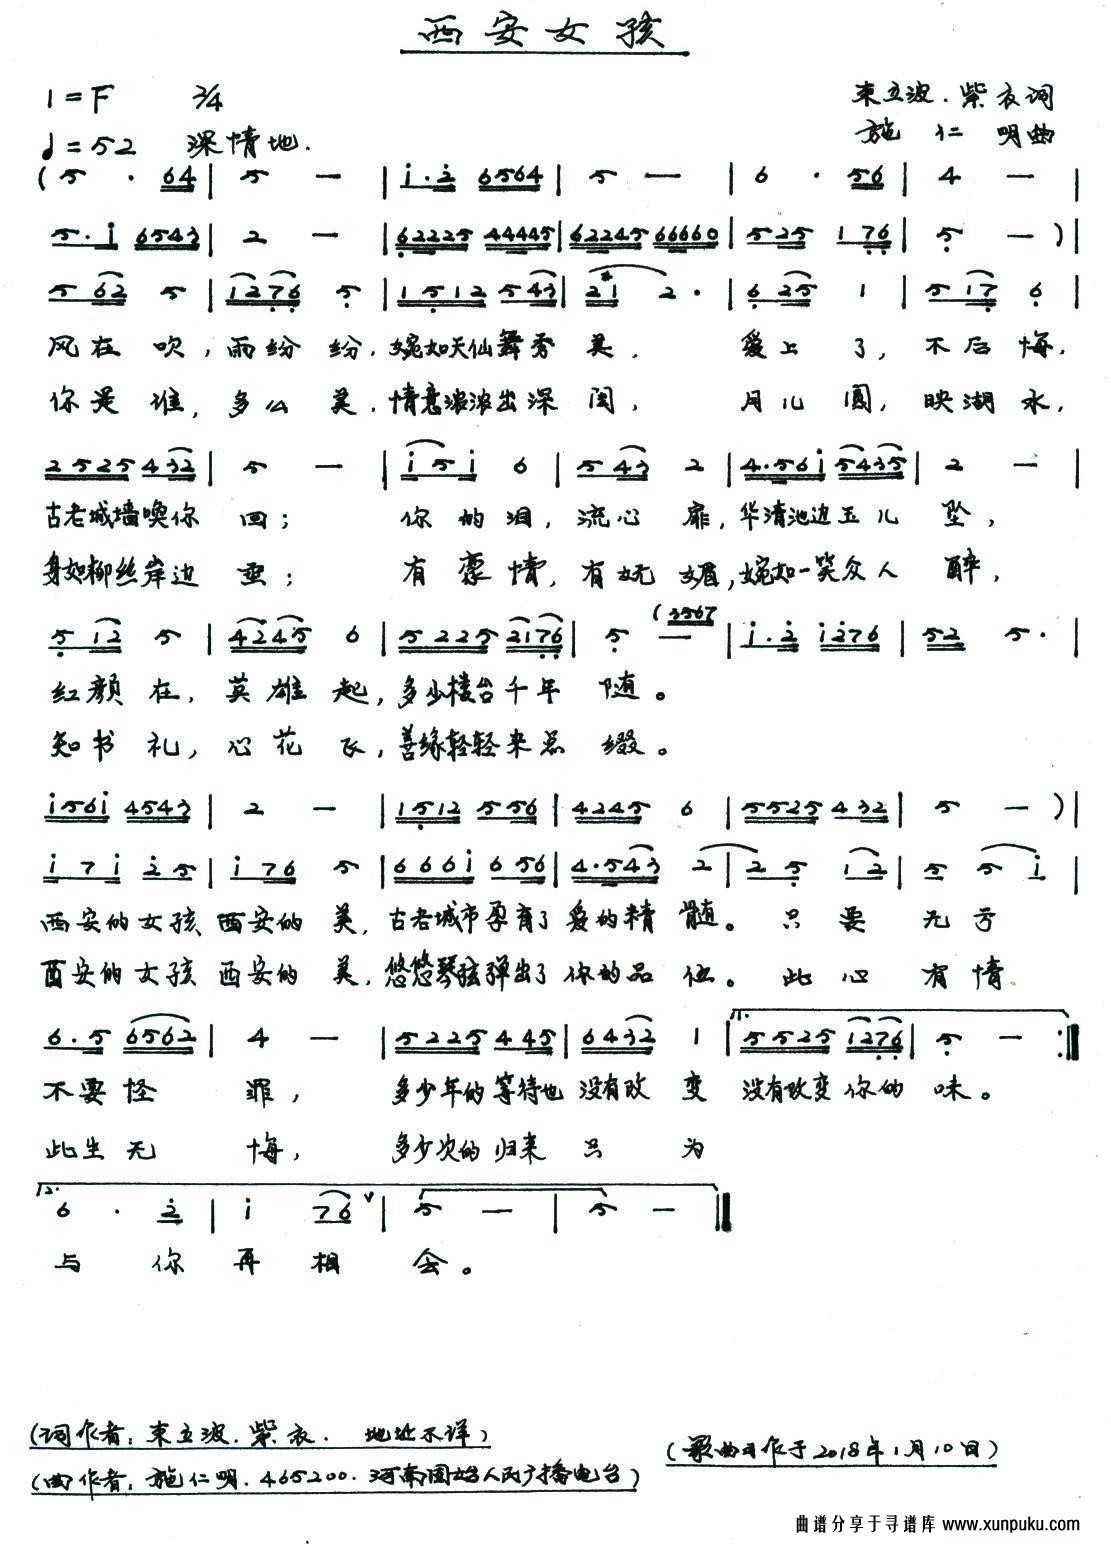 西安女孩
1=F 2/4 束立波.紫衣词
♩=52 深情地. 施仁明曲
(5 · 64 | 5 — | i·2 6564 | 5 — | 6 · 56 | 4 — |
5·i 6543 | 2 — | 62225 44445 | 62245 66660 | 525 176 | 5 — ) |
5 62 5 | 1276 5 | 1512 543 | 21 2· | 6 25 1 | 5 17 6 |
风在吹,雨纷纷.婉如天仙舞秀美,爱上了,不后悔.
你是谁,多么美.情意浓浓出深闺,月儿圆,映湖水,
2525 432 | 5 — | i5i 6 | 5 43 2 | 4·56i 5435 | 2 — |
古老城墙唤你回;你的泪,流心扉,华清池边玉儿坠,
身如柳丝岸边垂;有豪情,有妩媚,婉如一笑众人醉,
5 12 5 | 4245 6 | 5225 2176 | 5 — (3567 | i·2 i276 | 52 5· |
红颜在,英雄起,多少楼台千年随。
知书礼,心花飞,善缘轻轻来点缀。
i56i 4543 | 2 — | 1512 556 | 4245 6 | 5525 432 | 5 — ) |
i7i 25 | i76 5 | 666i 656 | 4·543 2 | 25 12 | 5 5 i |
西安的女孩西安的美,古老城市孕育了爱的精髓。只要无亏
西安的女孩西安的美,悠悠琴弦弹出了你的品位。此心有情
6·5 6562 | 4 — | 5225 445 | 6432 1 | 1. 5525 1276 | 5 — :|
不要怪罪,多少年的等待也没有改变没有改变你的味。
此生无悔,多少次的归来只为
2. 6 · 2 | i 76 ∨ | 5 — | 5 — ‖
与你再相会。
(词作者:束立波.紫衣. 地址不详)
(歌曲习作于2018年1月10日)
(曲作者:施仁明.465200.河南固始人民广播电台)
曲谱分享于寻谱库 www.xunpuku.com